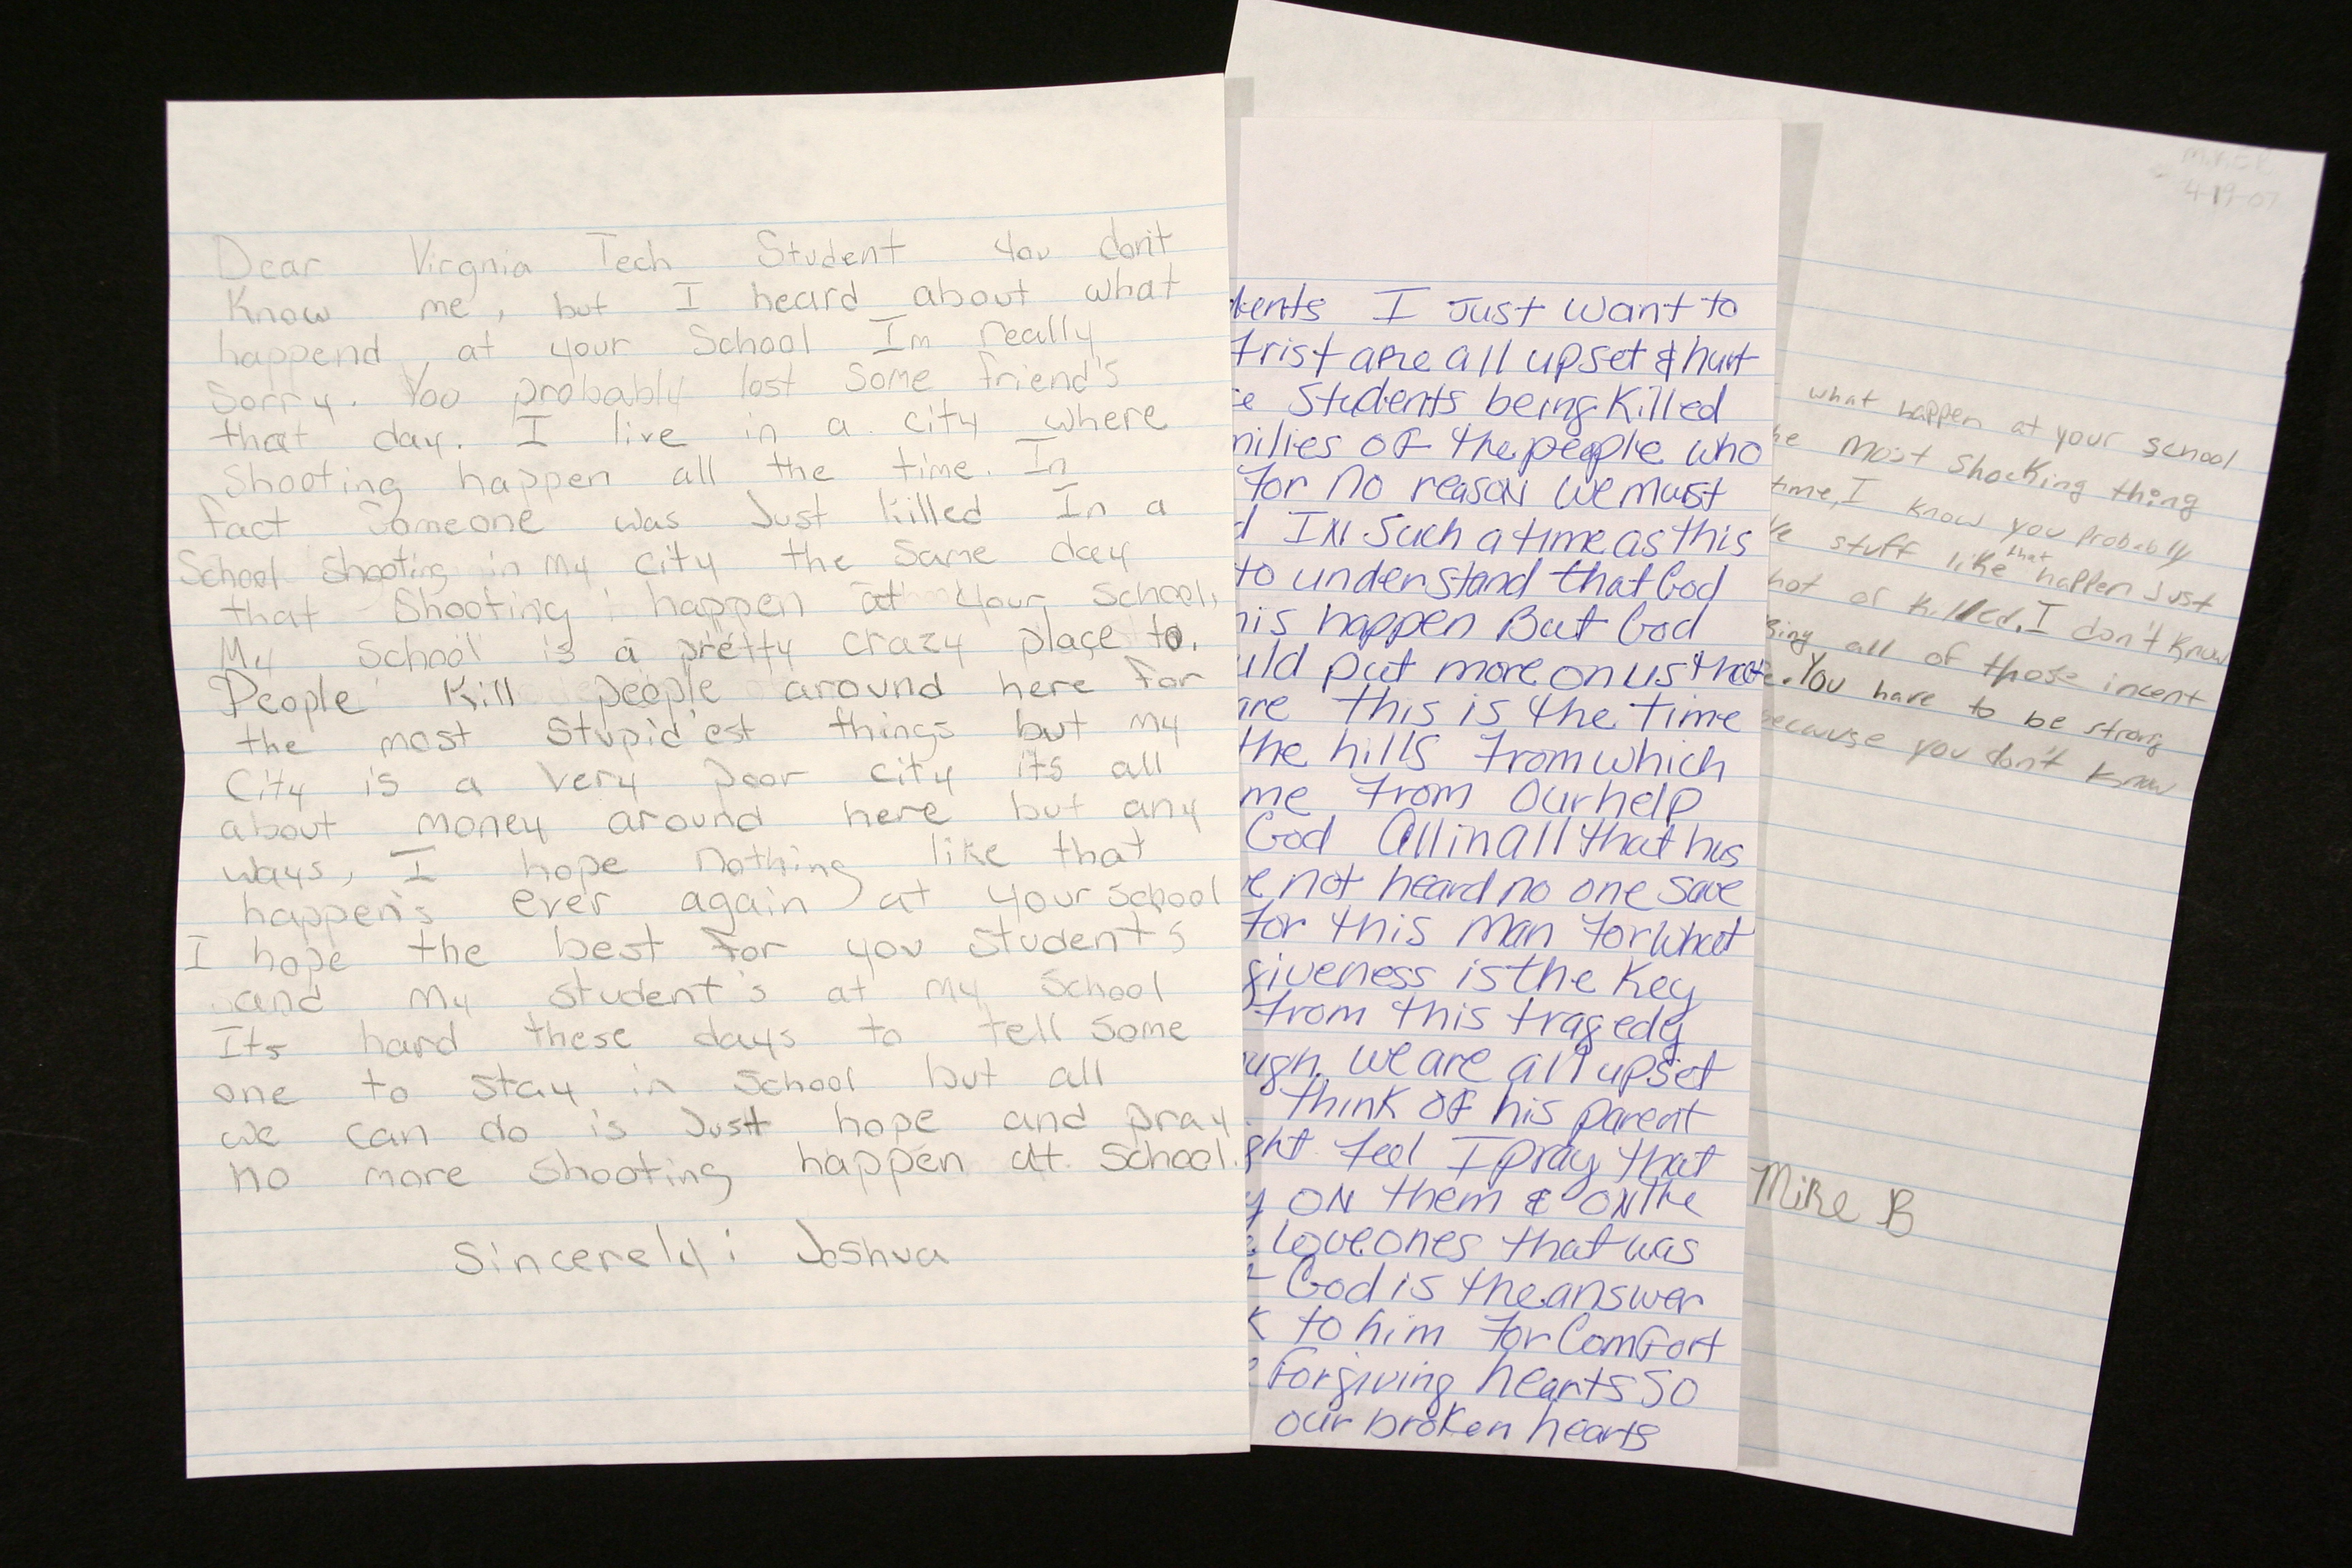 Dear Virgnia Tech Student you don't
Know me, but I heard about what
happend at your School Im really
Sorry. You probably lost some friend's
that day. I live in a city where
Shooting happen all the time. In
fact Someone was Just killed In a
School shooting in my city the same day
that shooting happen at your school,
My school is a pretty crazy place to.
People Kill people around here for
the most stupid'est things but my
City is a very poor city its all
about money around here but any
ways, I hope nothing like that
happen's ever again at your school
I hope the best for you student's
and my student's at my school
Its hard these days to tell some
one to stay in school but all
we can do is Just hope and pray
no more shooting happen att school.
Sincerely: Joshua
dents I Just want to
trist are all upset & hurt
Students being Killed
milies of the people who
for no reason we must
d IN Such a time as this
to understand that God
his happen But God
uld put more on us that
are this is the time
the hills from which
me from Our help
God All in all that has
e not heard no one save
for this man for what
giveness is the key
from this tragedy
ugh we are all upset
think of his parent
ght feel I pray that
y ON them & ON the
Loveones that was
God is the answer
K to him for Comfort
forgiving hearts So
our broken hearts
4-19-07
what happen at your school
he most shocking thing
time, I know you probably
ve stuff like that happen Just
hot or killed. I don't know
sing all of those incent
e. You have to be strong
because you don't know
Mike B